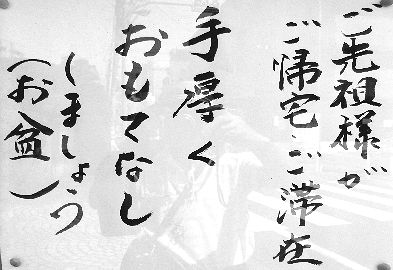 ご先祖様が
ご帰宅、ご滞在
手厚く
おもてなし
しましょう
（お盆）